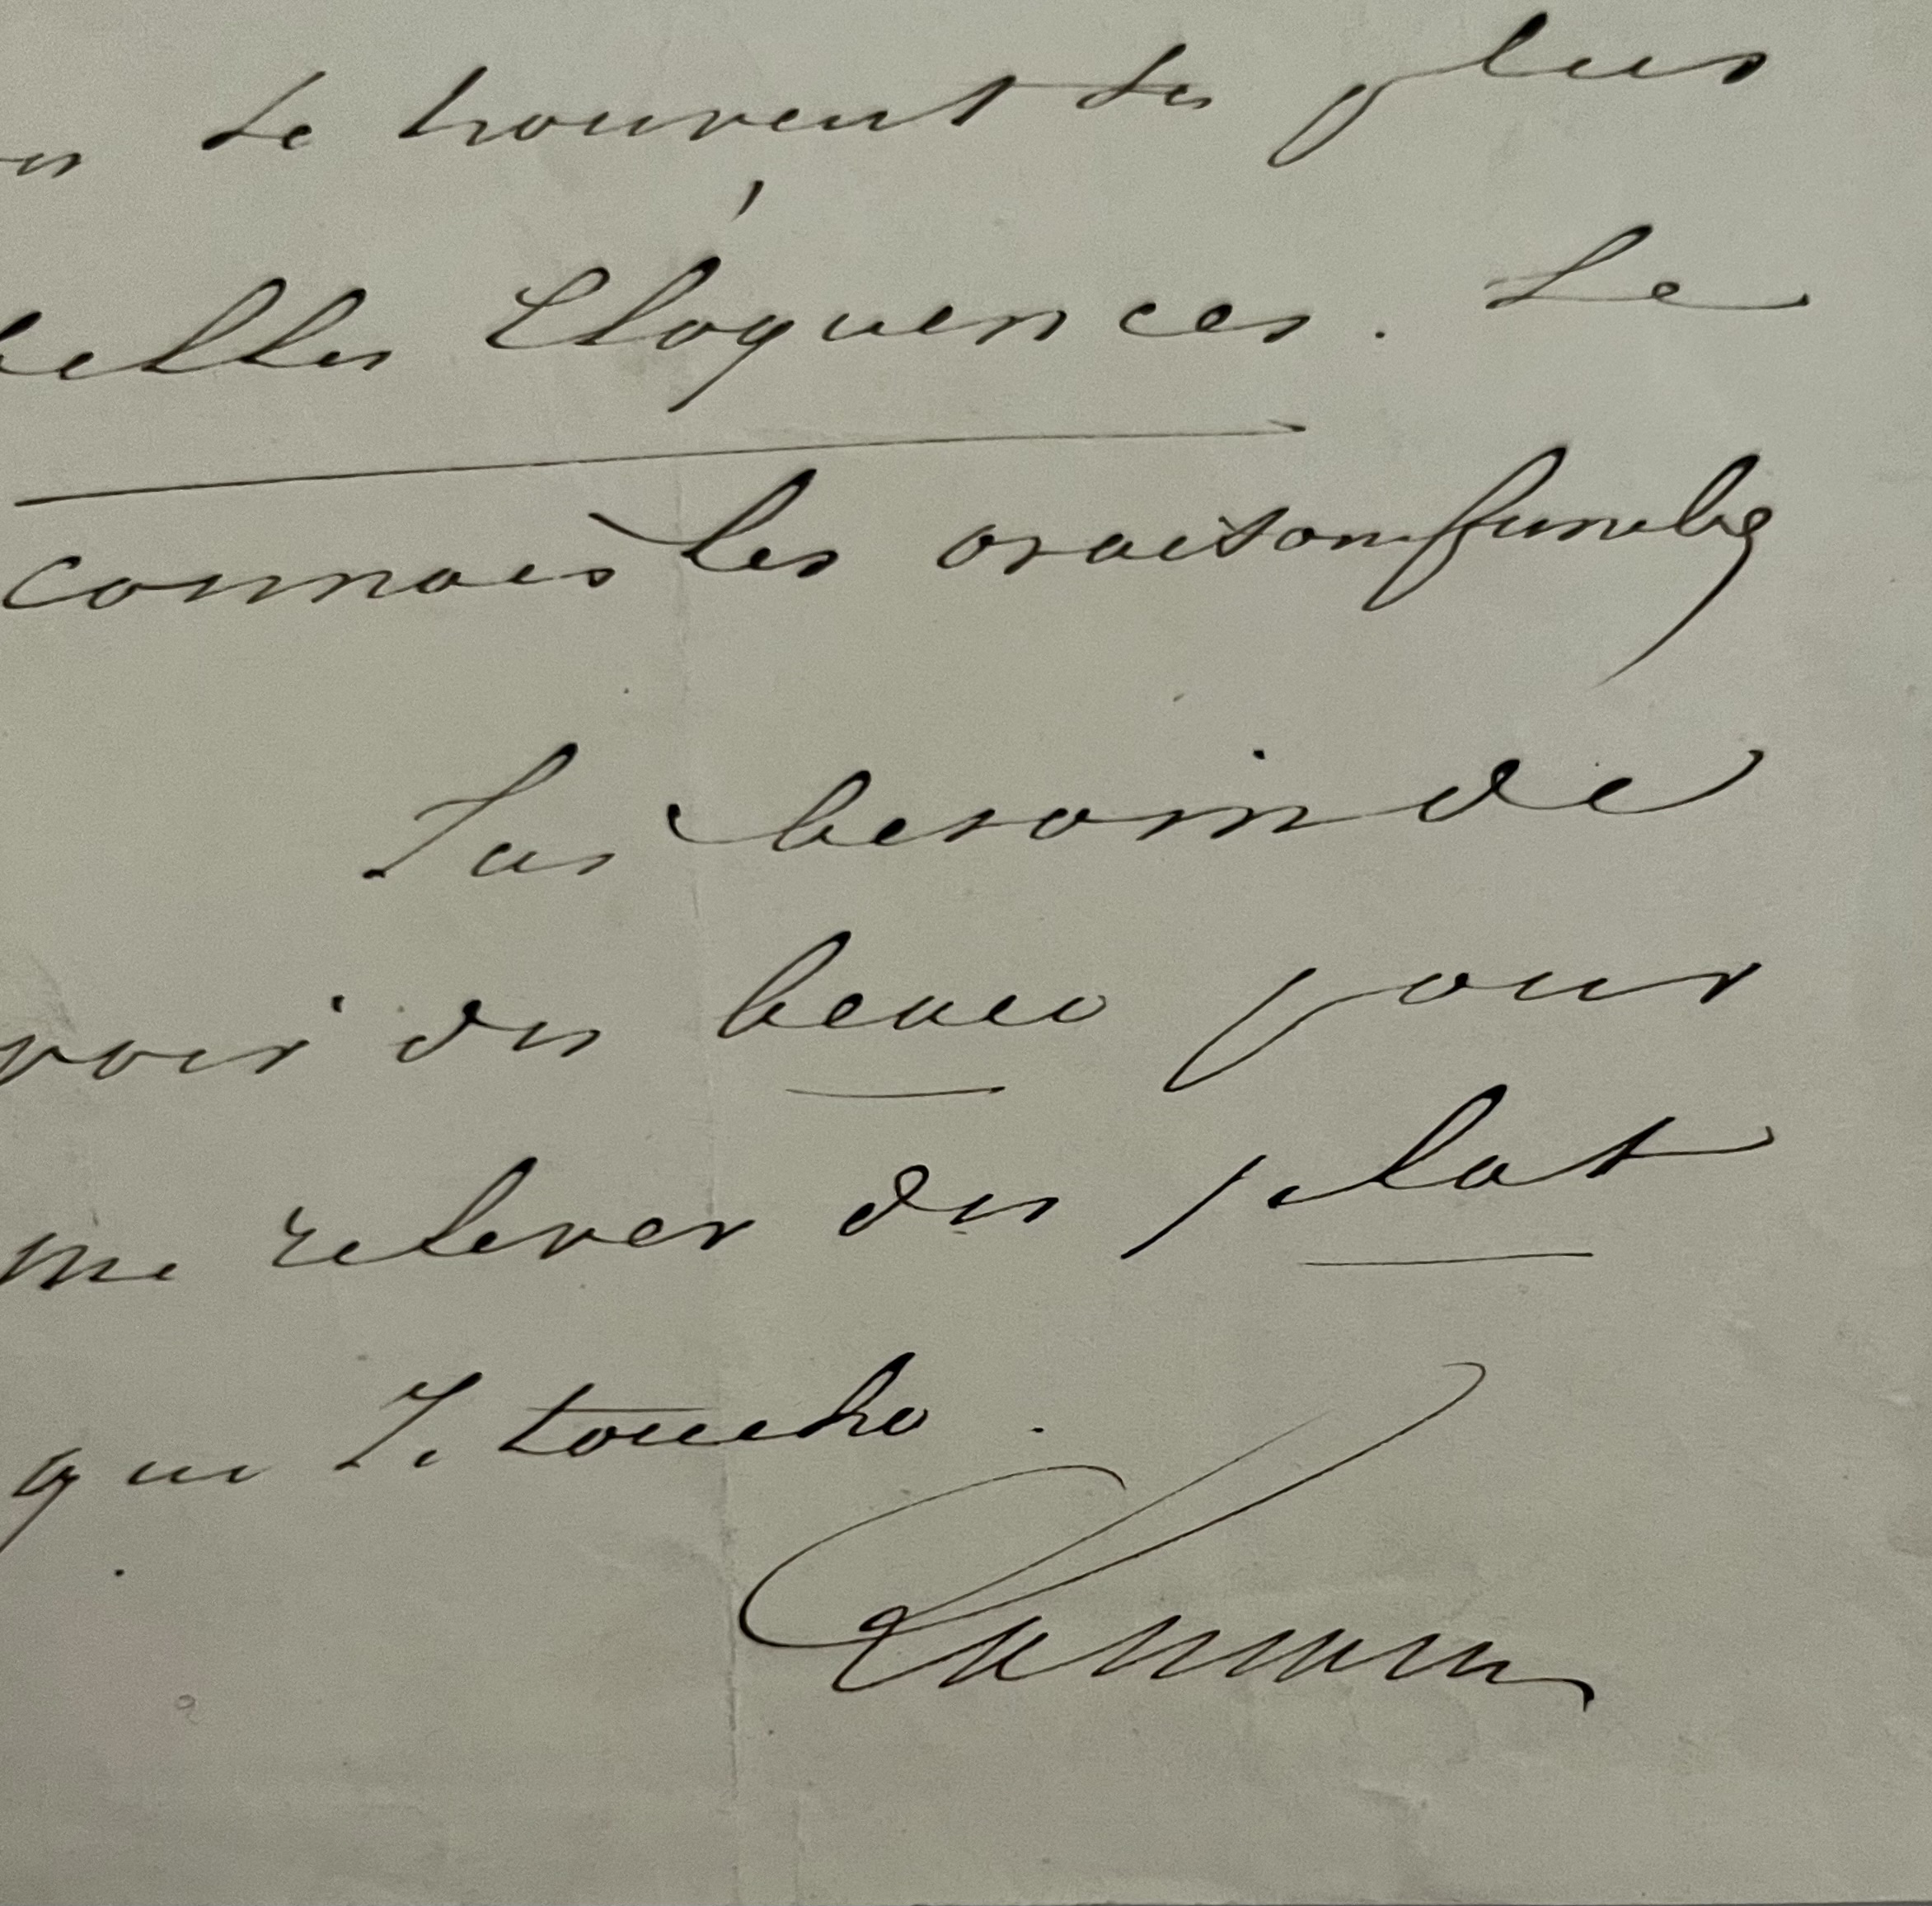 se trouvent les plus
belles Eloquences. Je
connais les oraisons funebres
J'ai besoin de
voir du beau pour
me relever du plat
que Je touche.